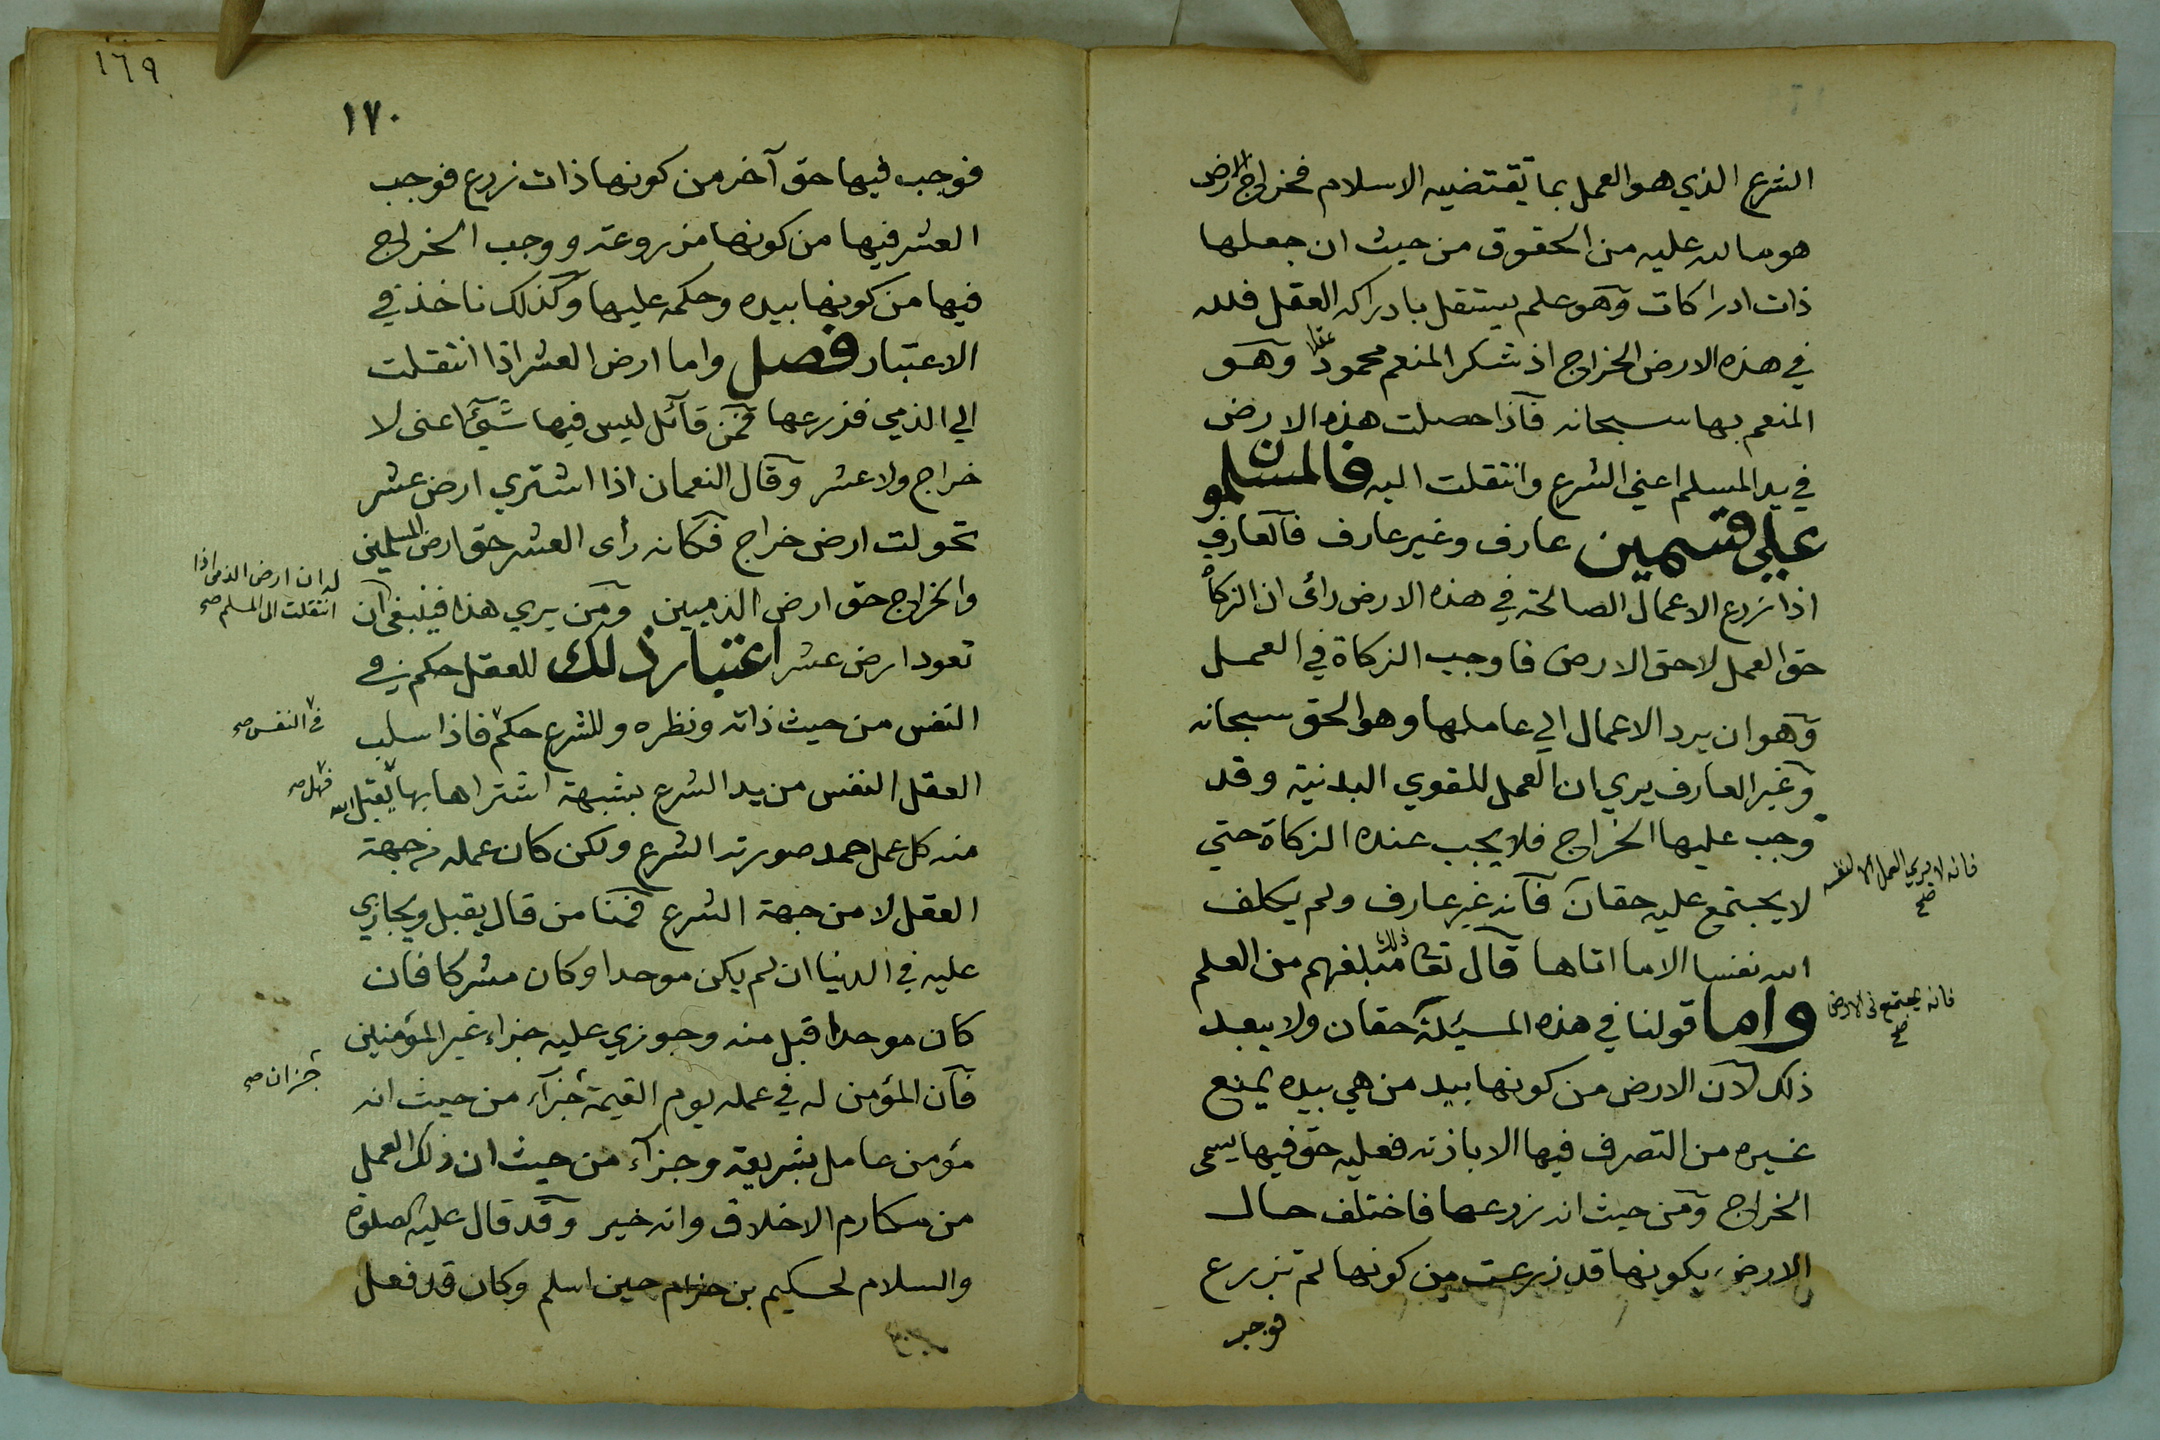 الشرع الذي هو العمل بما تقتضيه الاسلام فخراج الارض
هو ما لله عليه من الحقوق من حيث ان جعلها
ذات ادراكات وهو علم يستقل بادراكه العقل فلله
في هذه الارض الخراج اذ شكر المنعم محمود عقلا وهو
المنعم بها سبحانه فاذا حصلت هذه الارض
في يد المسلم اعني الشرع وانتقلت اليه فالمسلمون
على قسمين عارف وغير عارف فالعارف
اذا زرع الاعمال الصالحة في هذه الارض رائ ان الزكاة
حق العمل لا حق الارض فاوجب الزكاة في العمل
وهو ان يرد الاعمال الي عاملها وهو الحق سبحانه
وغير العارف يري ان العمل للقوي البدنية وقد
وجب عليها الخراج فلا يجب عنده الزكاة حتي
فانه لا يري العمل الا لنفسه صح
لا يجتمع عليه حقان فانه غير عارف ولم يكلف
الله نفسا الا ما اتاها قال تعا ذلك مبلغهم من العلم
فانه يجتمع في الارض صح
واما قولنا في هذه المسئلة حقان ولا يبعد
ذلك لان الارض من كونها بيد من هي بيده يمنع
غيره من التصرف فيها الا باذنه فعليه حق فيها يسمى
الخراج ومن حيث انه زرعها فاختلف حال
الارض بكونها قد زرعت من كونها لم تزرع
فوجب
١٦٩
١٧٠
فوجب فيها حق آخر من كونها ذات زرع فوجب
العشر فيها من كونها مزروعة ووجب الخراج
فيها من كونها بيده وحكمه عليها وكذلك ناخذ في
الاعتبار فصل واما ارض العشر اذا انتقلت
الي الذمي فزرعها فمن قائل ليس فيها شئ اعنى لا
خراج ولا عشر وقال النعمان اذا اشتري ارض عشر
تحولت ارض خراج فكانه رأى العشر حق ارض المسلمين
والخراج حق ارض الذميين ومن يري هذا فينبغي ان
له ان ارض الذمى اذا
انتقلت الى المسلم صح
تعود ارض عشر اعتبار ذلك للعقل حكم في
النفس من حيث ذاته ونظره وللشرع حكم فاذا سلب
في النفس صح
العقل النفس من يد الشرع بشبهة اشتراها بها يقبل الله
فهل صح
منه كل عمل حمد صورته الشرع ولكن كان عمله من جهة
العقل لا من جهة الشرع فمنا من قال يقبل ويجازي
عليه في الدنيا ان لم يكن موحدا وكان مشركا فان
كان موحدا قبل منه وجوزي عليه جزاء غير المؤمنين
فان المؤمن له في عمله يوم القيمة جزآء من حيث انه
جزآن صح
مؤمن عامل بشريعة وجزآء من حيث ان ذلك العمل
من مكارم الاخلاق وانه خير وقد قال عليه الصلوة
والسلام لحكيم بن حزام حين اسلم وكان قد فعل